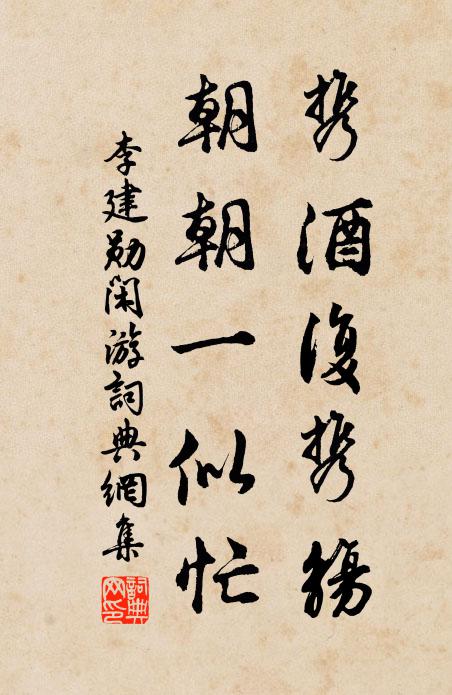 携酒复携觞
朝朝一似忙
李建勋闲游詞典網集
詞典网印